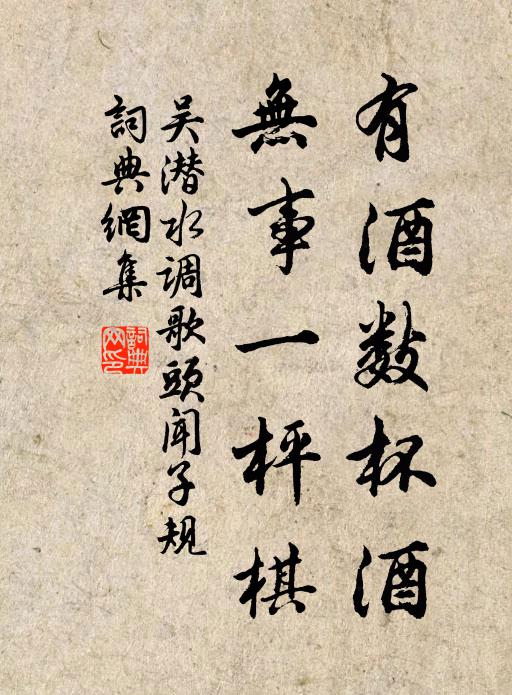 有酒数杯酒
無事一枰棋
吴潜水调歌頭闻子规
詞典網集
詞典网印